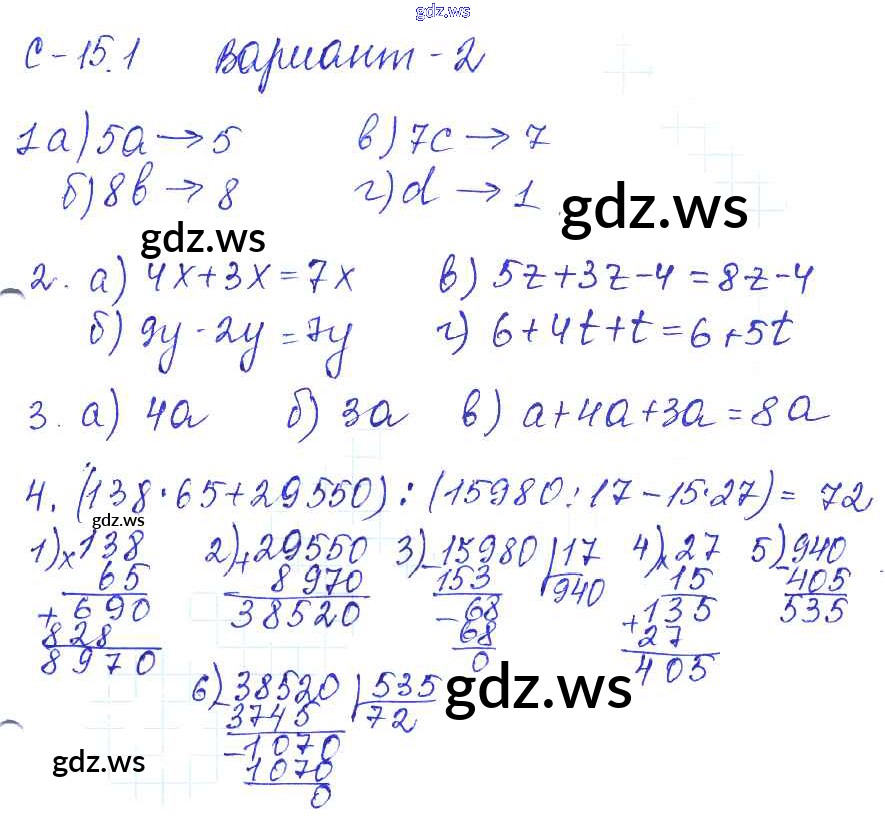 gdz.ws
С-15.1 Вариант-2
1а) 5a → 5 в) 7c → 7
б) 8b → 8 г) d → 1
gdz.ws gdz.ws
2. а) 4x+3x=7x в) 5z+3z-4=8z-4
б) 9y-2y=7y г) 6+4t+t=6+5t
3. а) 4a б) 3a в) a+4a+3a=8a
4. (138·65+29550):(15980:17-15·27)=72
gdz.ws
1) × 138 2) + 29550 3) - 15980 | 17 4) × 27 5) - 940
65 8970 153 940 15 405
+ 690 38520 - 68 + 135 535
828 68 27
8970 0 405
6) - 38520 | 535 gdz.ws
3745 72
- 1070
gdz.ws 1070
0